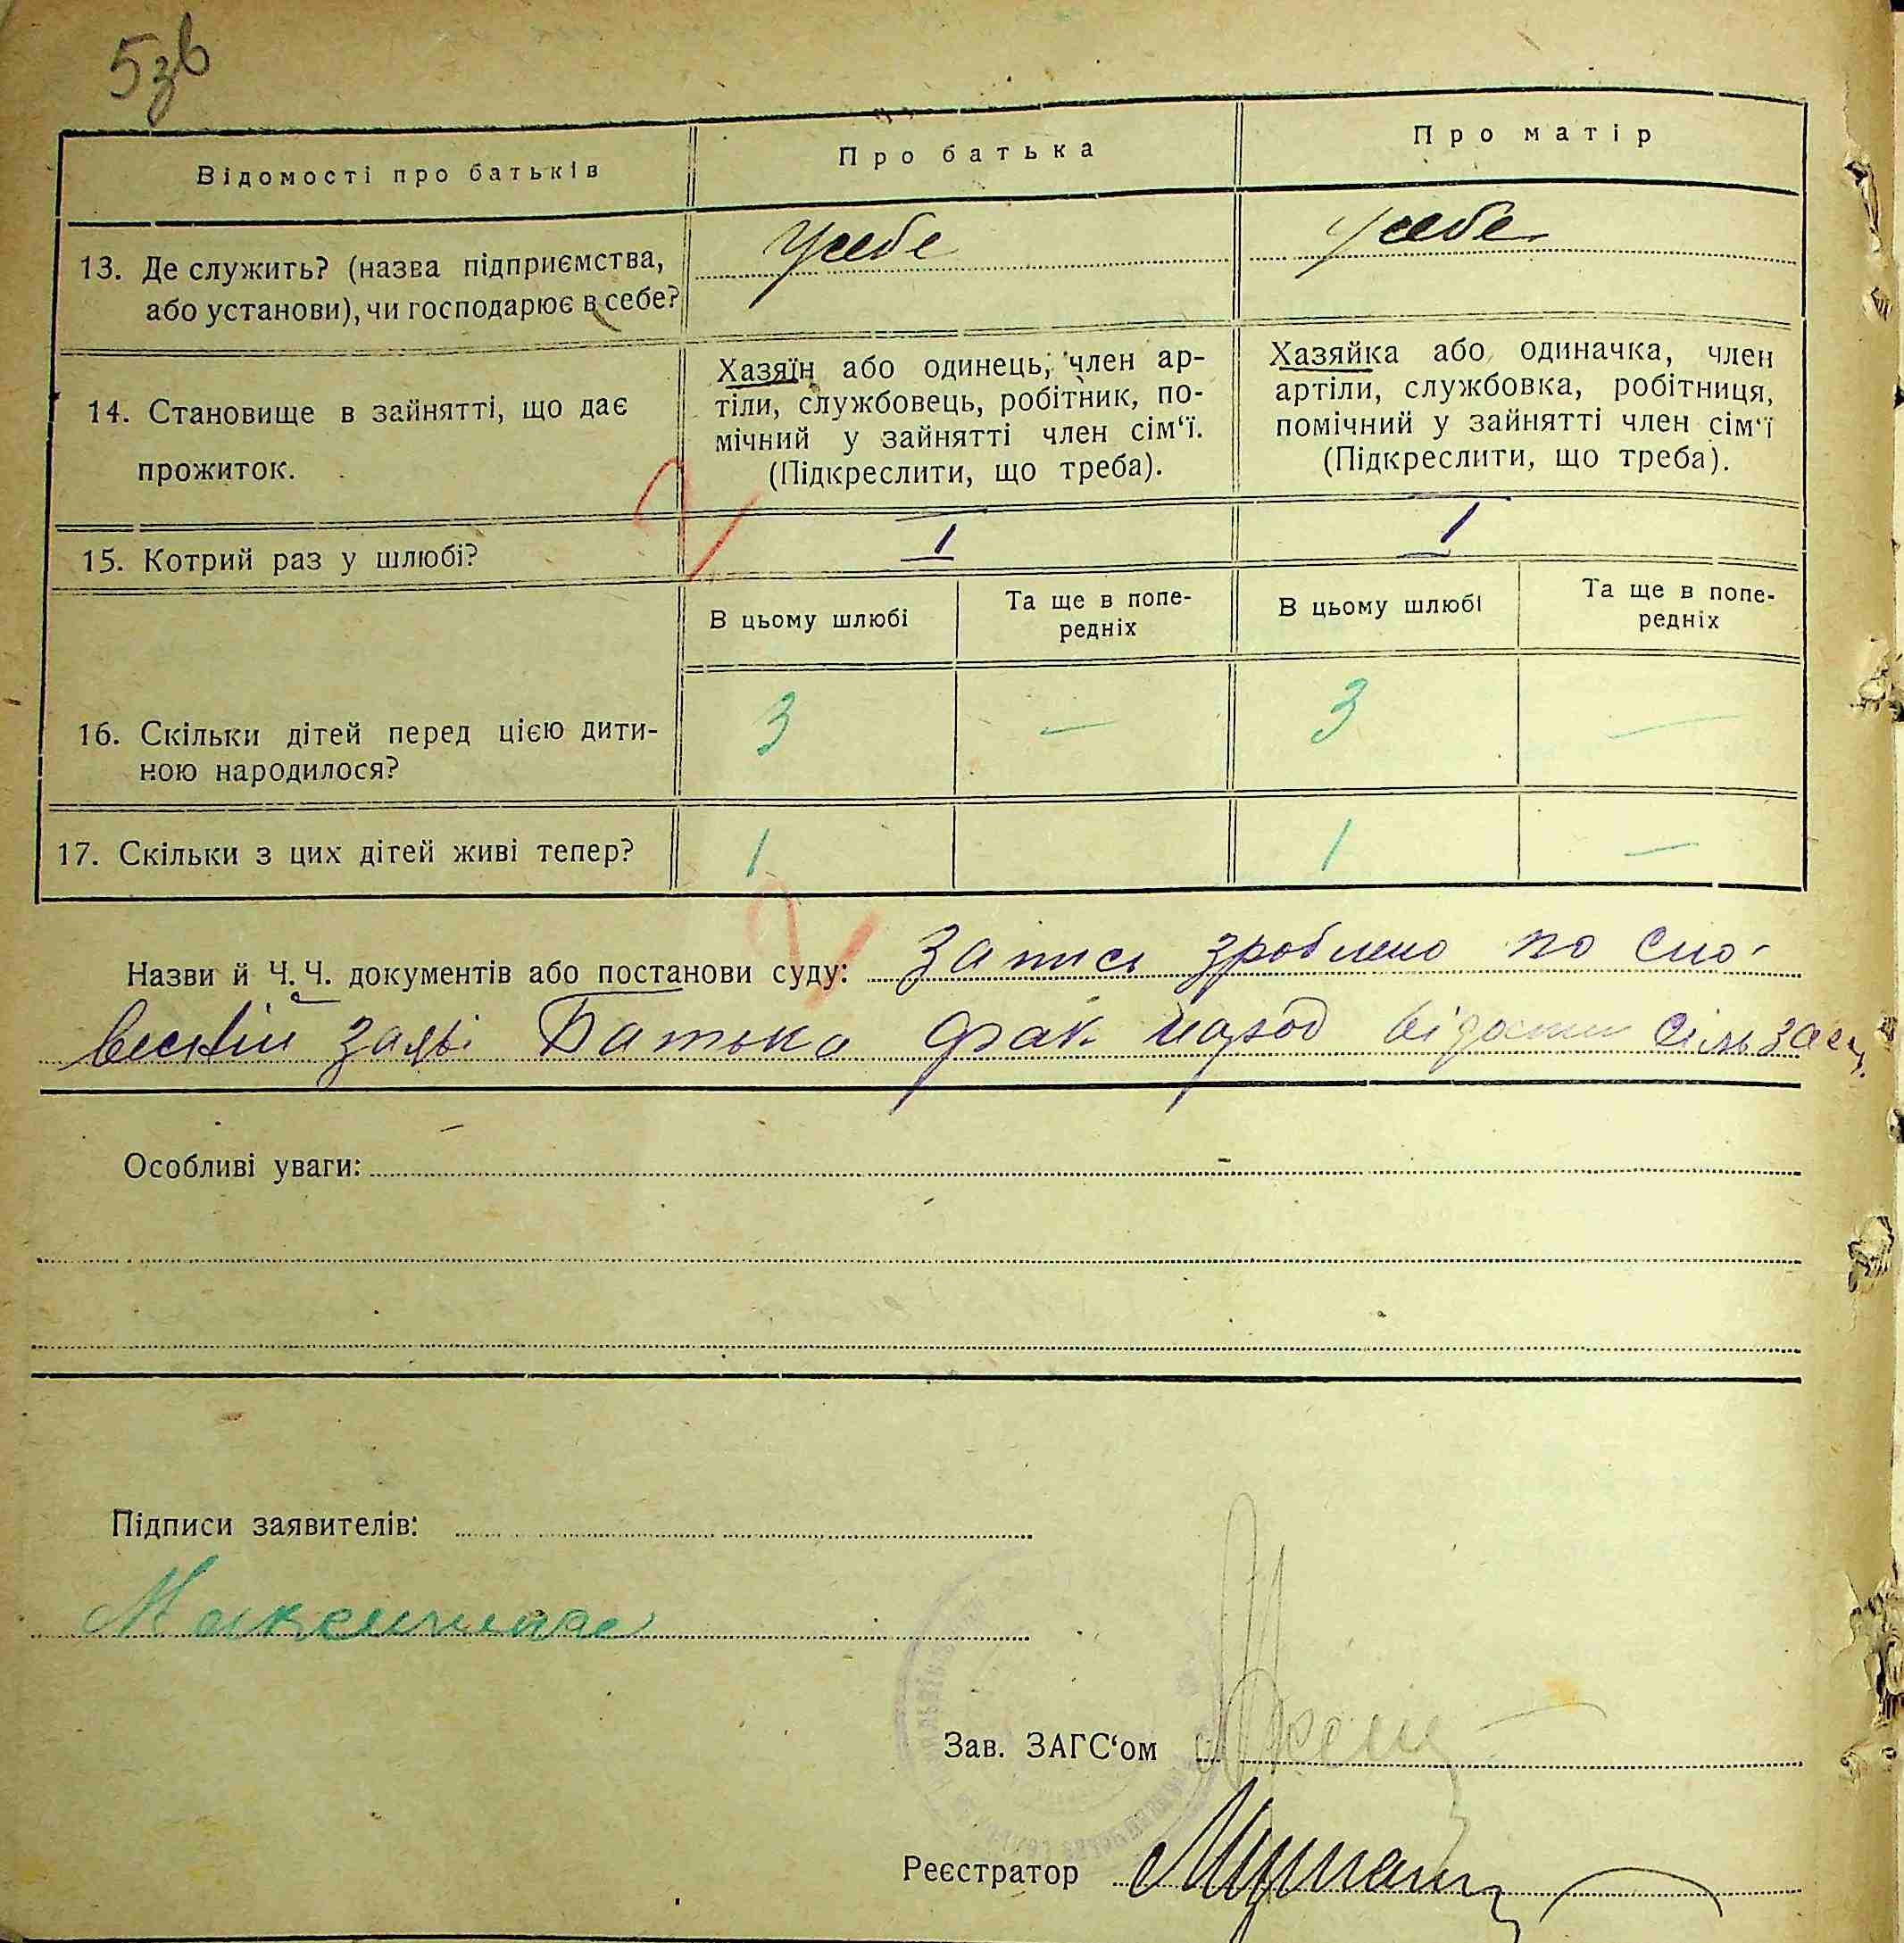 5зв
Відомості про батьків
Про батька
Про матір
13. Де служить? (назва підприємства,
або установи), чи господарює в себе?
у себе
у себе
14. Становище в зайнятті, що дає
прожиток.
Хазяїн або одинець, член ар-
тіли, службовець, робітник, по-
мічний у зайнятті член сім‘ї.
(Підкреслити, що треба).
Хазяйка або одиначка, член
артіли, службовка, робітниця,
помічний у зайнятті член сім‘ї
(Підкреслити, що треба).
15. Котрий раз у шлюбі?
1
1
В цьому шлюбі
Та ще в попе-
редніх
В цьому шлюбі
Та ще в попе-
редніх
16. Скільки дітей перед цією дити-
ною народилося?
3
—
3
—
17. Скільки з цих дітей живі тепер?
1
1
—
Назви й Ч. Ч. документів або постанови суду: Запись зроблено по сло-
весній заяві Батька фак народ
Особливі уваги:
Підписи заявителів:
Зав. ЗАГС‘ом
Реєстратор